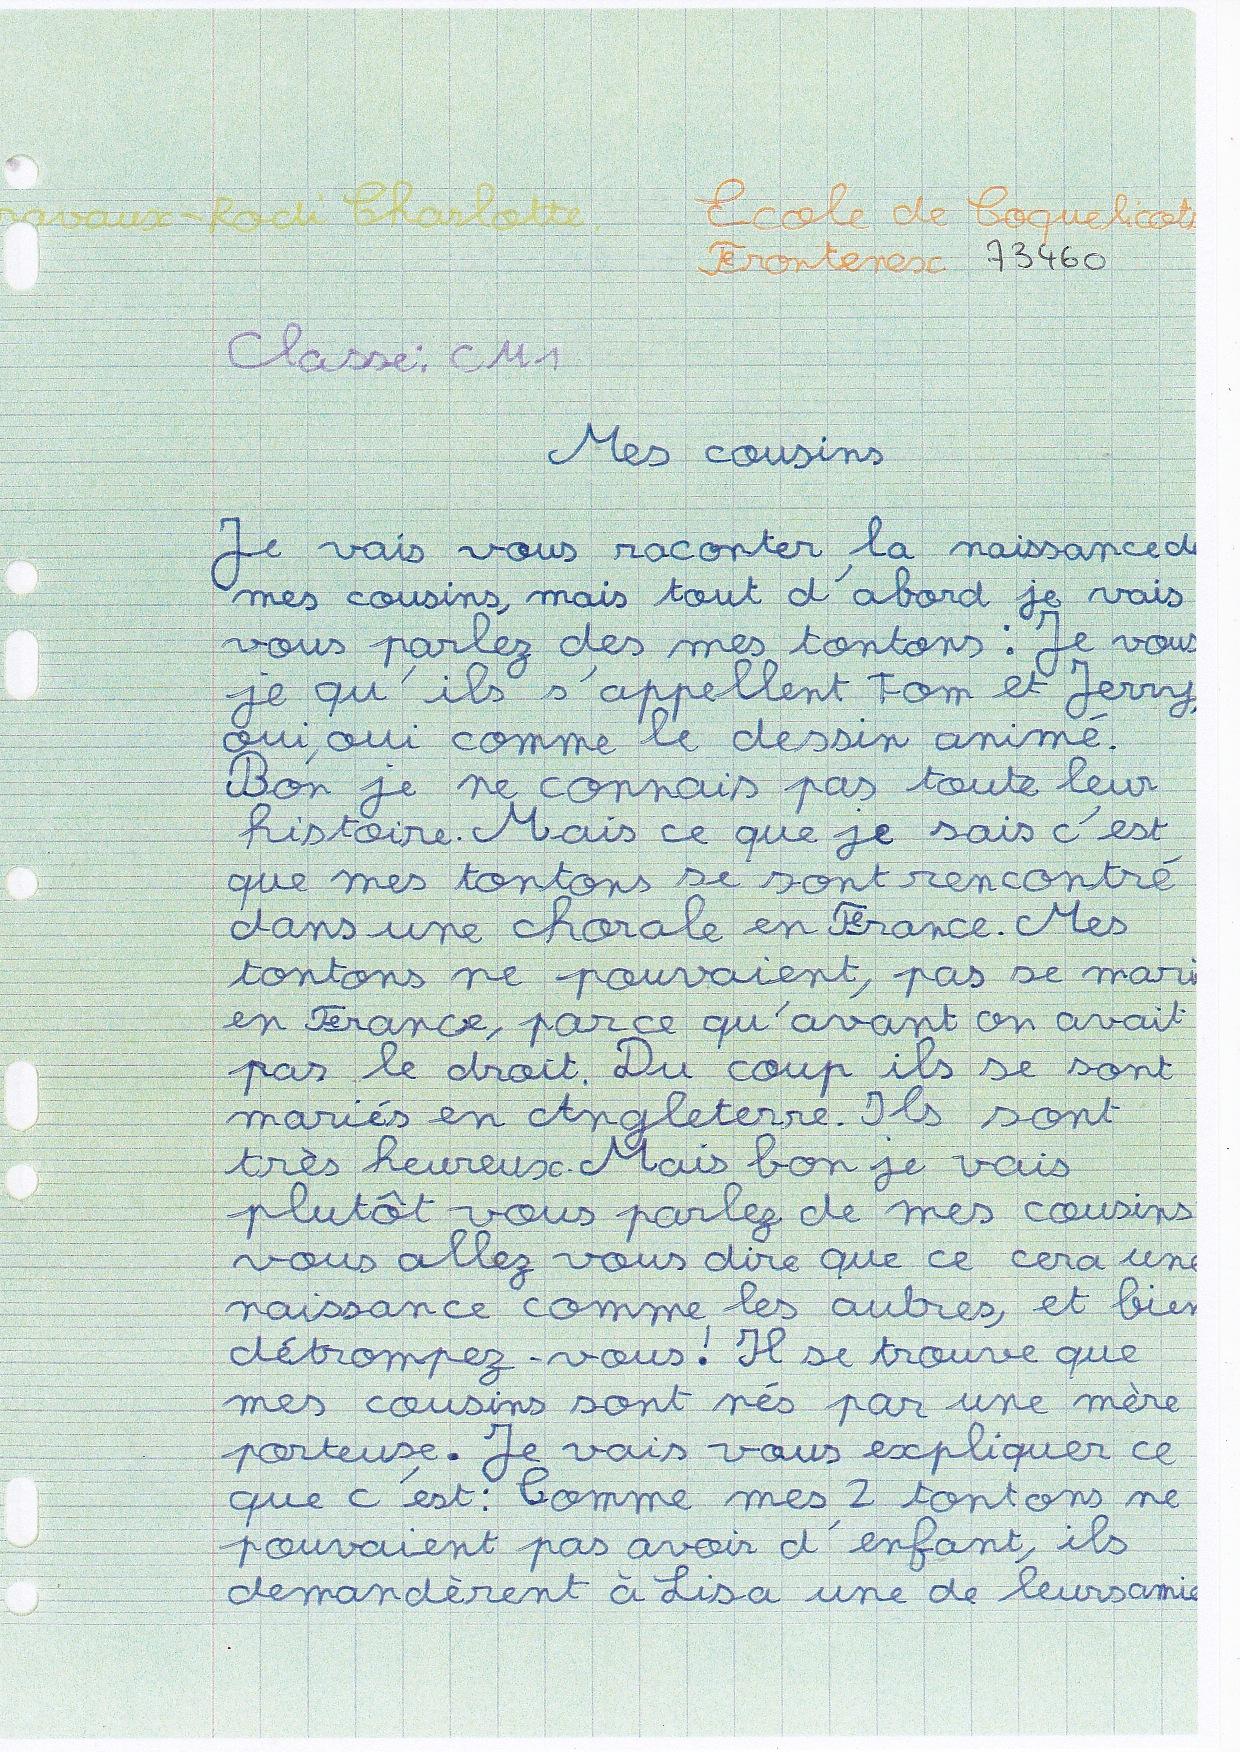 ravaux-Rodi Charlotte. Ecole de Coquelicots
Frontenex 73460
Classe: CM1
Mes cousins
Je vais vous raconter la naissance de
mes cousins, mais tout d'abord je vais
vous parlez des mes tontons : Je vous
je qu'ils s'appellent Tom et Jerry,
oui, oui comme le dessin animé.
Bon je ne connais pas toute leur
histoire. Mais ce que je sais c'est
que mes tontons se sont rencontré
dans une chorale en France. Mes
tontons ne pouvaient, pas se mari
en France, parce qu'avant on avait
pas le droit. Du coup ils se sont
mariés en Angleterre. Ils sont
très heureux. Mais bon je vais
plutôt vous parlez de mes cousins
vous allez vous dire que ce cera une
naissance comme les autres, et bien
détrompez-vous! Il se trouve que
mes cousins sont nés par une mère
porteuse. Je vais vous expliquer ce
que c'est: Comme mes 2 tontons ne
pouvaient pas avoir d'enfant, ils
demandèrent à Lisa une de leurs amie